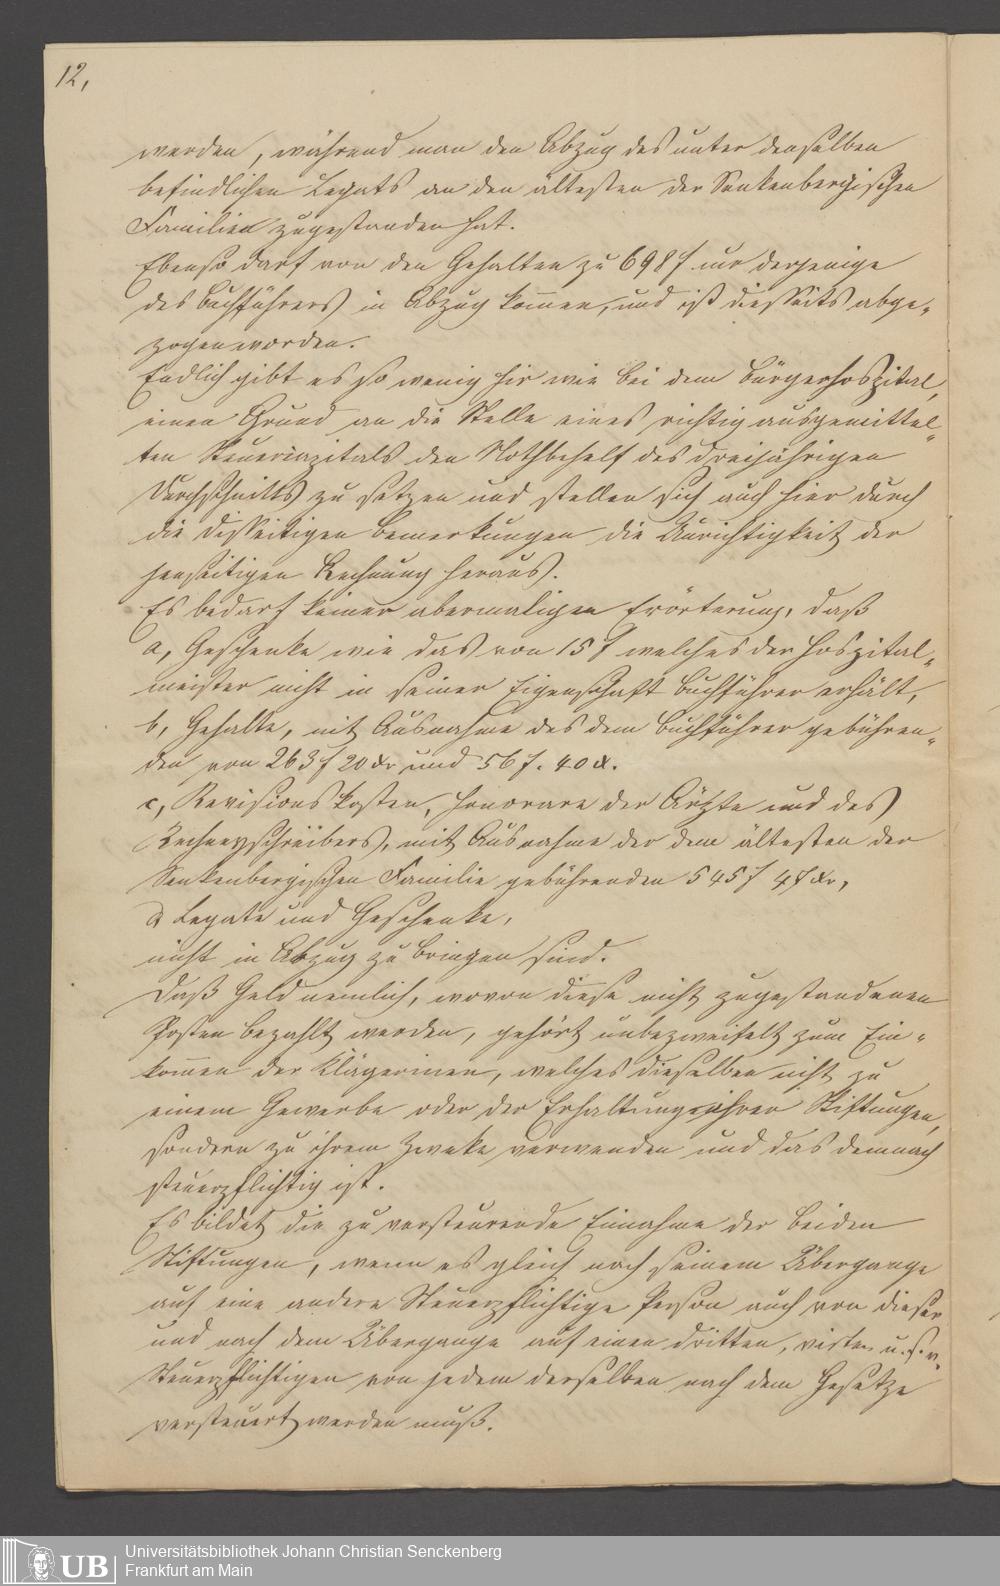 12,
werden, während man den Abzug des unter denselben
befindlichen Legats an den ältesten der Senkenbergischen
Familien zugestanden hat.
Ebenso darf von den Gehalten zu 698 f nur derjenige
des Buchführers in Abzug kommen, und ist diesseits abge-
zogen worden.
Endlich gibt es so wenig hier wie bei dem Bürgerhospital,
einen Grund an die Stelle eines richtig ausgemittel-
ten Steuercapitals den Nothbehelf des dreijährigen
Durchschnitts zu setzen und stellen sich auch hier durch
die disseitigen Bemerkungen die Unrichtigkeit der
jenseitigen Rechnung heraus.
Es bedarf keiner abermaligen Erörterung, daß
a, Geschenke wie das von 15 f welches der Hospital-
meister nicht in seiner Eigenschaft Buchführer erhält,
b, Gehalte, mit Ausnahme des dem Buchführer gebühren-
den von 263 f 20 xr und 56 f. 40 x.
c, Revisionskosten, Honorare der Ärtzte und des
Rechneyschreibers, mit Ausnahme der dem ältesten der
Senkenbergischen Familie gebührenden 545 f 47 xr,
d Legate und Geschenke,
nicht in Abzug zu bringen sind.
Daß Geld nemlich, wovon diese nicht zugestandenen
Posten bezahlt werden, gehört unbezweifelt zum Ein-
kommen der Klägerinen, welches dieselben nicht zu
einem Gewerbe oder der Erhaltung ihrer Stiftungen,
sondern zu ihrem Zweke verwenden und das demnach
steuerpflichtig ist.
Es bildet die zu versteurende Einnahme der beiden
Stiftungen, wenn es gleich nach seinem Übergange
auf eine andere Steuerpflichtige Person auch von dieser
und nach dem Übergange auf einen dritten, vierten u. s. w.
Steuerpflichtigen von jedem derselben nach dem Gesetze
versteuert werden muß.
UB
Universitätsbibliothek Johann Christian Senckenberg
Frankfurt am Main